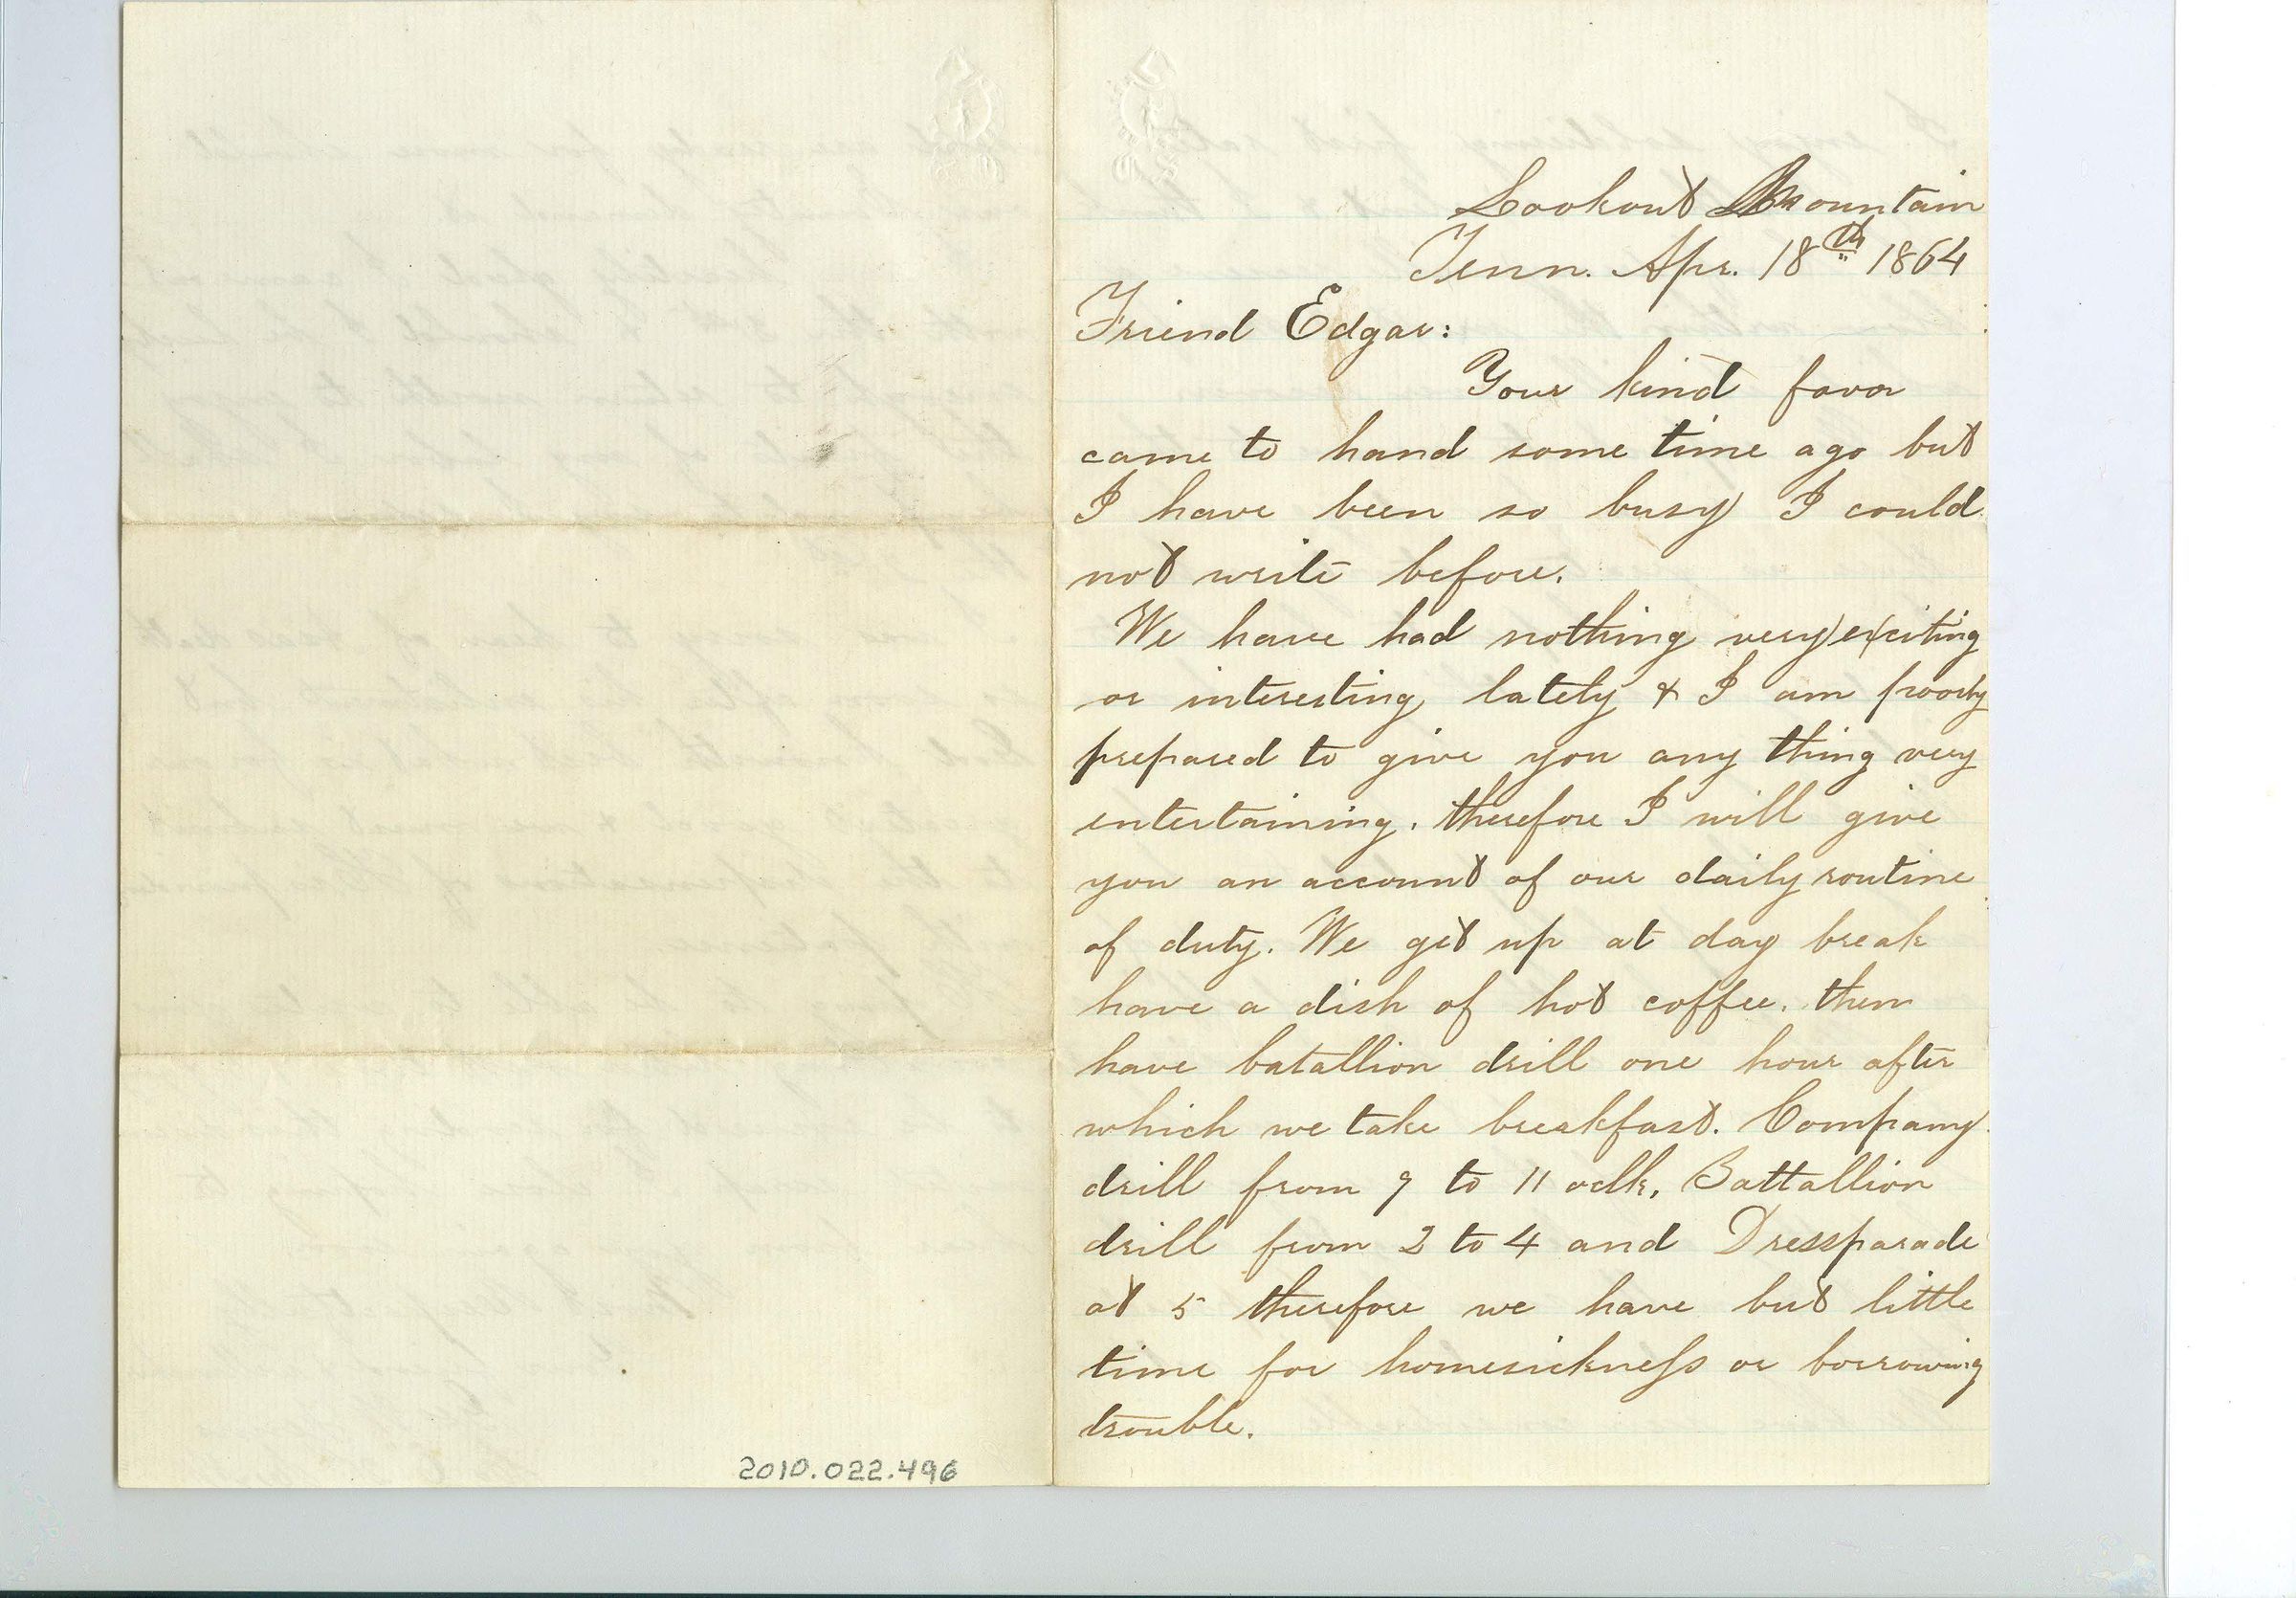 Lookout Mountain
Tenn. Apr. 18th 1864
Friend Edgar:
Your kind favor
came to hand some time ago but
I have been so busy I could
not write before.
We have had nothing very exciting
or interesting lately & I am poorly
prepared to give you any thing very
entertaining. therefore I will give
you an account of our daily routine
of duty. We get up at day break
have a dish of hot coffee. then
have batallion drill one hour after
which we take breakfast. Company
drill from 9 to 11 oclk. Battallion
drill from 2 to 4 and Dressparade
at 5 therefore we have but little
time for homesickneſs or borrowing
trouble.
2010.022.496